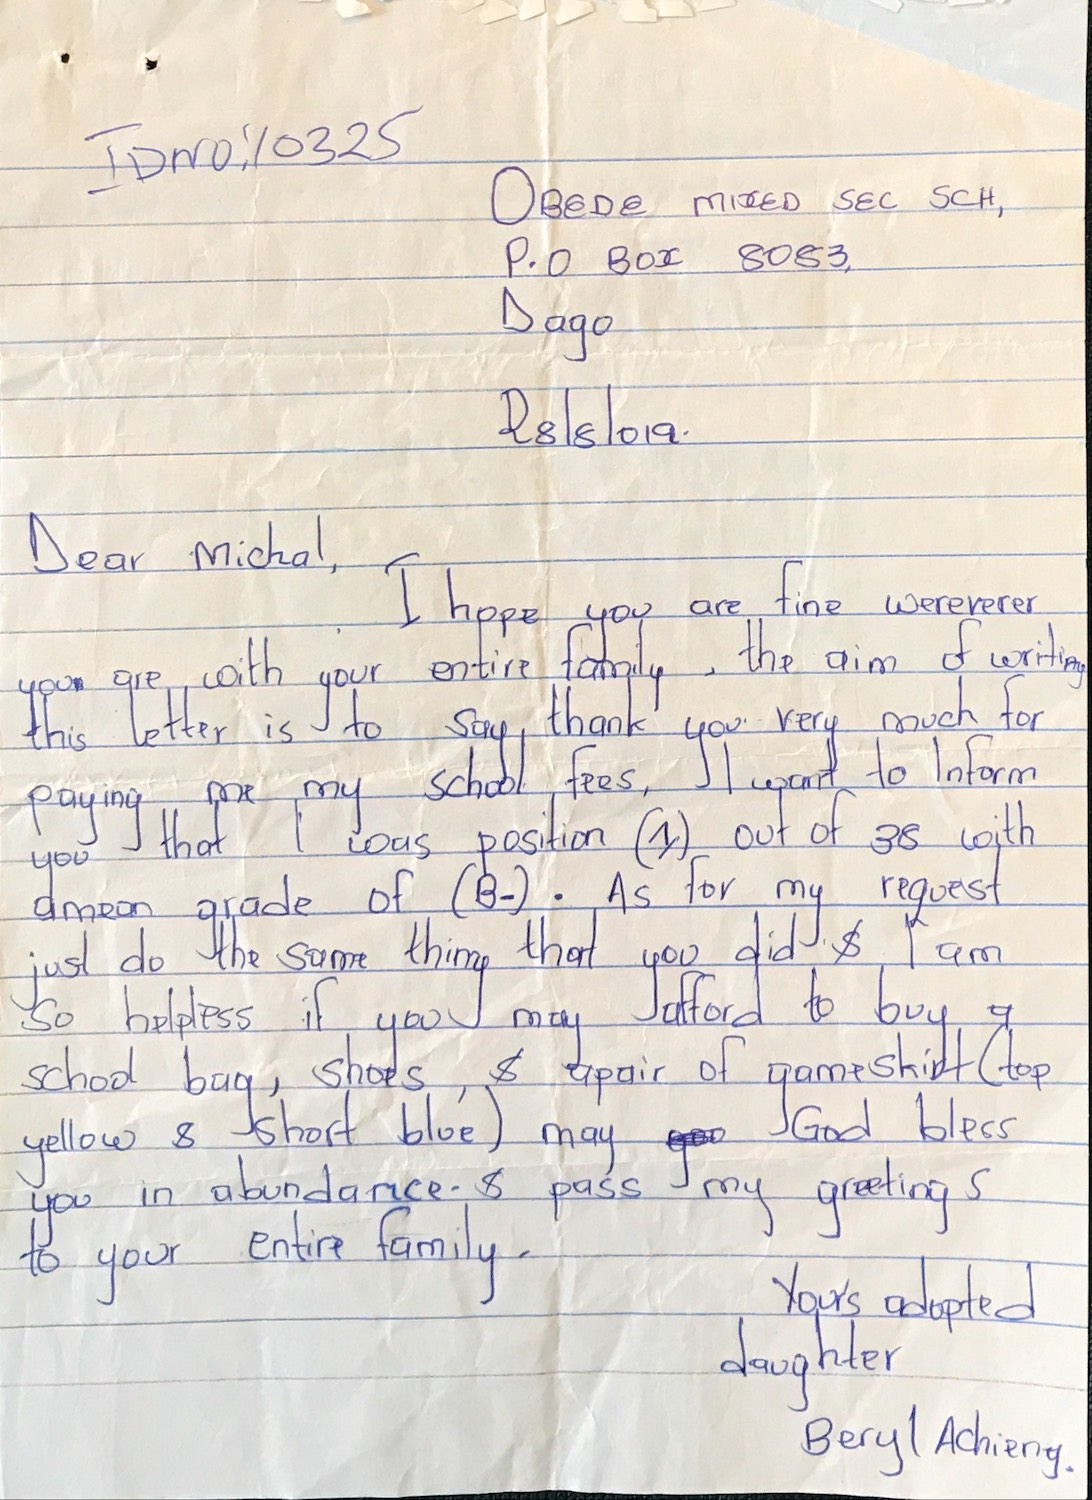 IDNO:/0325
OBEDE MIXED SEC SCH,
P.O BOX 8083,
Dago
28/8/019.
Dear Michal,
I hope you are fine wereverer
you are with your entire family, the aim of writing
this letter is to say thank you very much for
paying me my school fees, I want to Inform
you that I was position (1) out of 38 with
amean grade of (B-). As for my request
just do the same thing that you did & I am
so helpless if you may afford to buy a
school bag, shoes, & apair of gameskirt (top
yellow & short blue) may God bless
you in abundance. & pass my greetings
to your entire family.
Your's adopted
daughter
Beryl Achieng.